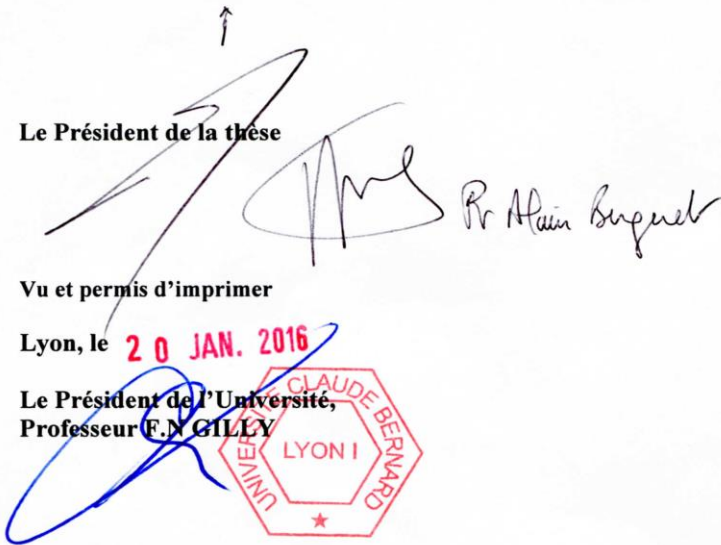 Le Président de la thèse
Pr Alain Bergeret
Vu et permis d'imprimer
Lyon, le 20 JAN. 2016
Le Président de l'Université,
Professeur F.N GILLY
UNIVERSITE CLAUDE BERNARD
LYON I